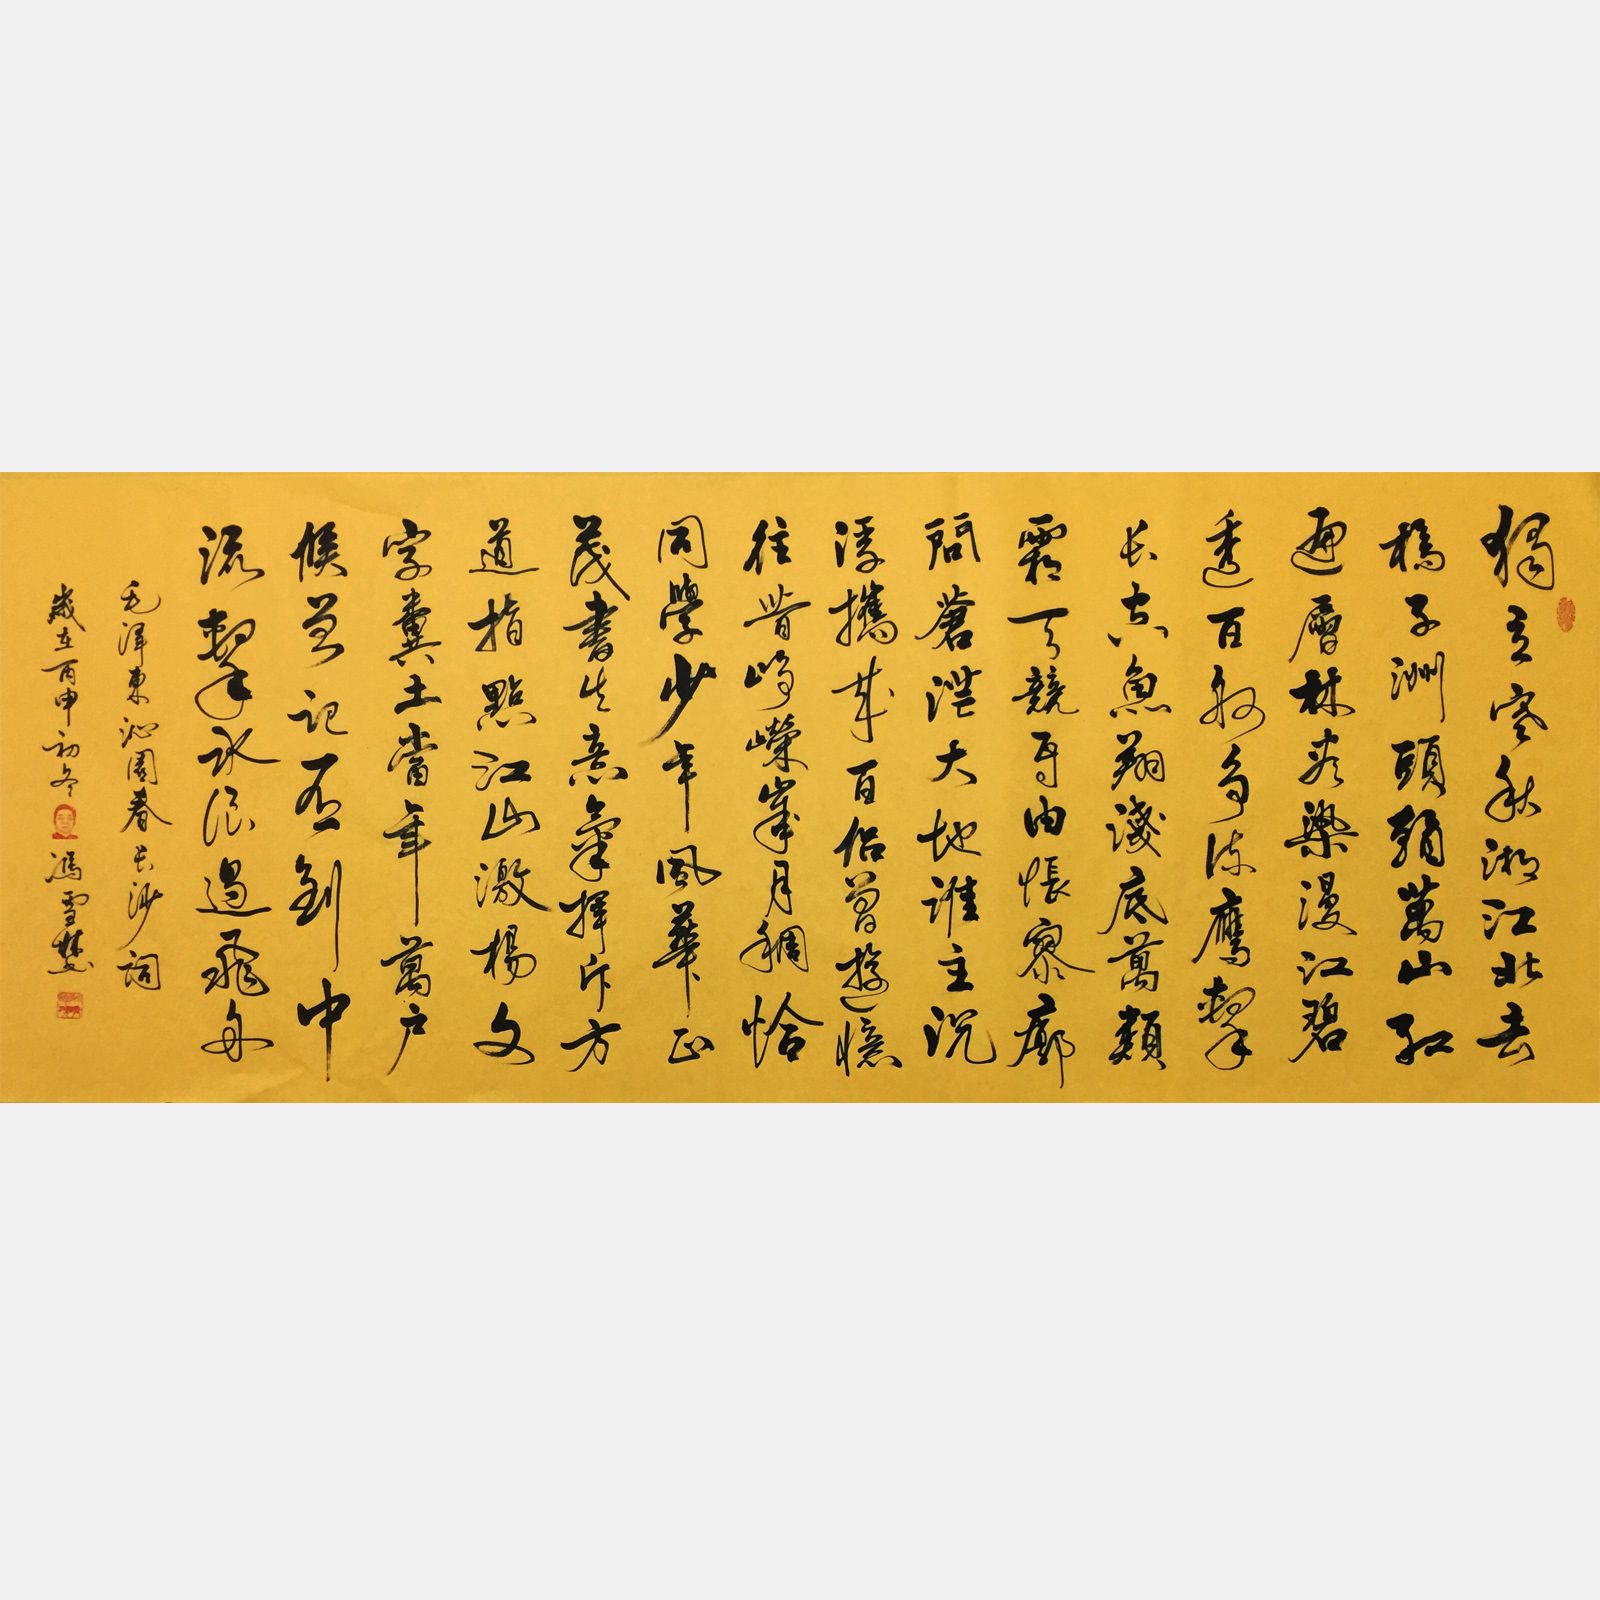 獨立寒秋湘江北去
橘子洲頭萬山紅
遍層林盡染漫江碧
透百舸爭流鷹擊
长空魚翔淺底萬類
霜天競自由悵寥廓
問蒼茫大地誰主沉
浮攜來百侣曾遊憶
往昔崢嶸歲月稠恰
同學少年風華正
茂書生意氣揮斥方
遒指點江山激揚文
字糞土當年萬户
候曾記否到中
流擊水浪遏飛舟
毛澤東沁園春长沙詞
歲在丙申初冬馮雪